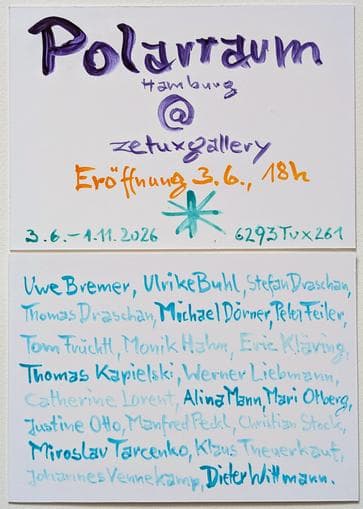 Polarraum
Hamburg
@
zetuxgallery
Eröffnung 3.6., 18h
3.6.-1.11.2026 6293Tux261
Uwe Bremer, Ulrike Buhl, Stefan Draschan,
Thomas Draschan, Michael Dörner, Peter Feiler,
Tom Früchtl, Monik Hahn, Eric Kläring,
Thomas Kapielski, Werner Liebmann,
Catherine Lorent, Alina Mann, Mari Otberg,
Justine Otto, Manfred Peckl, Christian Stock,
Miroslav Tarcenko, Klaus Theuerkauf,
Johannes Vennekamp, Dieter Wittmann.